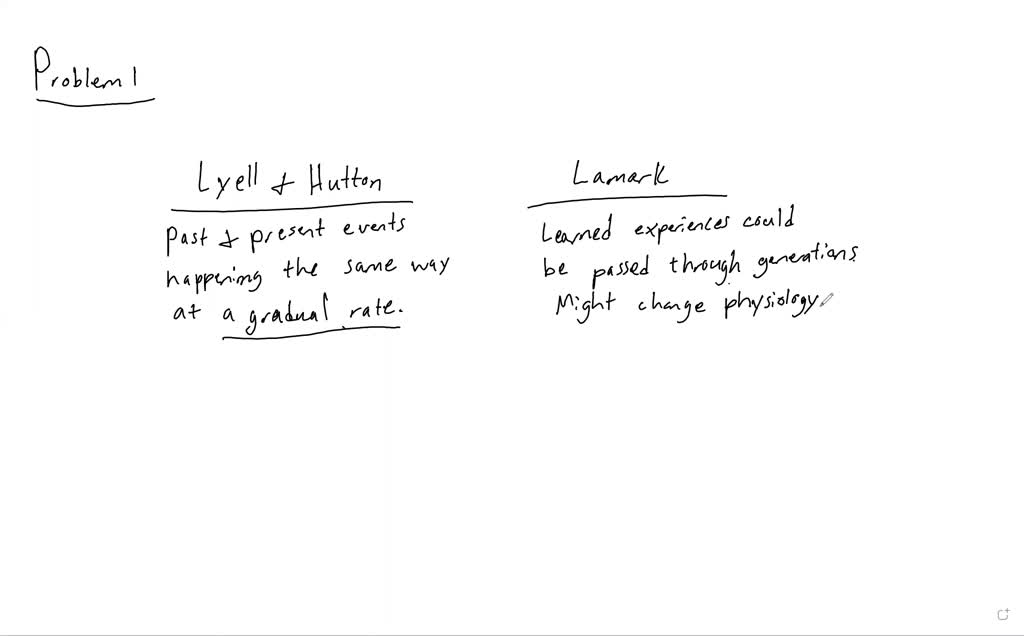 Problem 1
Lyell & Hutton
Past & present events
happening the same way
at a gradual rate.
Lamark
Learned experiences could
be passed through generations
Might change physiology